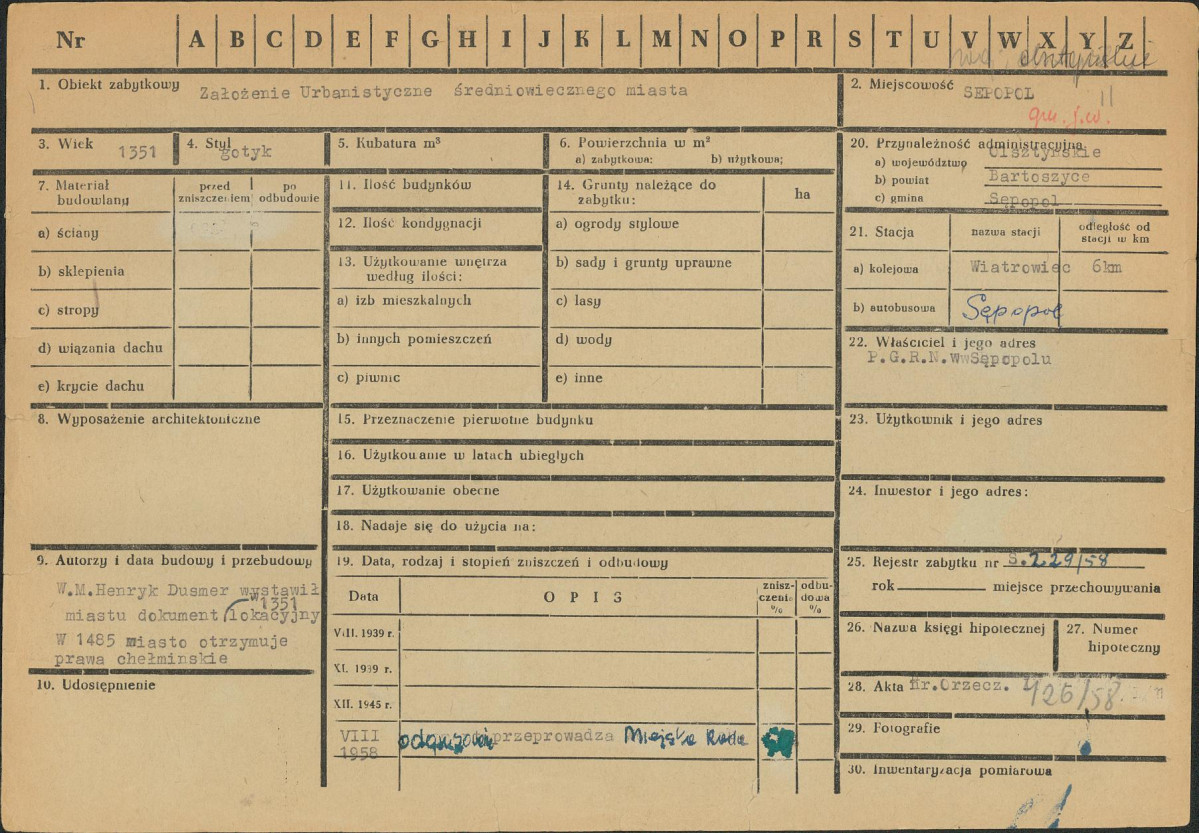 Nr A B C D E F G H I J K L M N O P R S T U V W X Y Z
woj. olsztyńskie
1. Obiekt zabytkowy Założenie Urbanistyczne średniowiecznego miasta
2. Miejscowość SĘPOPOL
3. Wiek 1351
4. Styl gotyk
5. Kubatura m³
6. Powierzchnia w m²
a) zabytkowa: b) użytkowa;
7. Materiał budowlany
przed zniszczeniem
po odbudowie
a) ściany
b) sklepienia
c) stropy
d) wiązania dachu
e) krycie dachu
8. Wyposażenie architektoniczne
9. Autorzy i data budowy i przebudowy
W.M.Henryk Dusmer wystawił
w 1351
miastu dokument lokacyjny
W 1485 miasto otrzymuje
prawa chełminskie
10. Udostępnienie
11. Ilość budynków
12. Ilość kondygnacji
13. Użytkowanie wnętrza
według ilości:
a) izb mieszkalnych
b) innych pomieszczeń
c) piwnic
14. Grunty należące do
zabytku:
ha
a) ogrody stylowe
b) sady i grunty uprawne
c) lasy
d) wody
e) inne
15. Przeznaczenie pierwotne budynku
16. Użytkowanie w latach ubiegłych
17. Użytkowanie obecne
18. Nadaje się do użycia na:
19. Data, rodzaj i stopień zniszczeń i odbudowy
Data
O P I S
znisz-
czenie
%
odbu-
dowa
%
VIII. 1939 r.
XI. 1939 r.
XII. 1945 r.
VIII
1958
przeprowadza Miejska Rada
20. Przynależność administracyjna
a) województwo Olsztyńskie
b) powiat Bartoszyce
c) gmina Sępopol
21. Stacja
nazwa stacji
odległość od
stacji w km
a) kolejowa Wiatrowiec 6km
b) autobusowa Sępopol
22. Właściciel i jego adres
P.G.R.N.WwSępopolu
23. Użytkownik i jego adres
24. Inwestor i jego adres:
25. Rejestr zabytku nr S.229/58
rok miejsce przechowywania
26. Nazwa księgi hipotecznej
27. Numer
hipoteczny
28. Akta Nr.Orzecz. 426/58
29. Fotografie
30. Inwentaryzacja pomiarowa